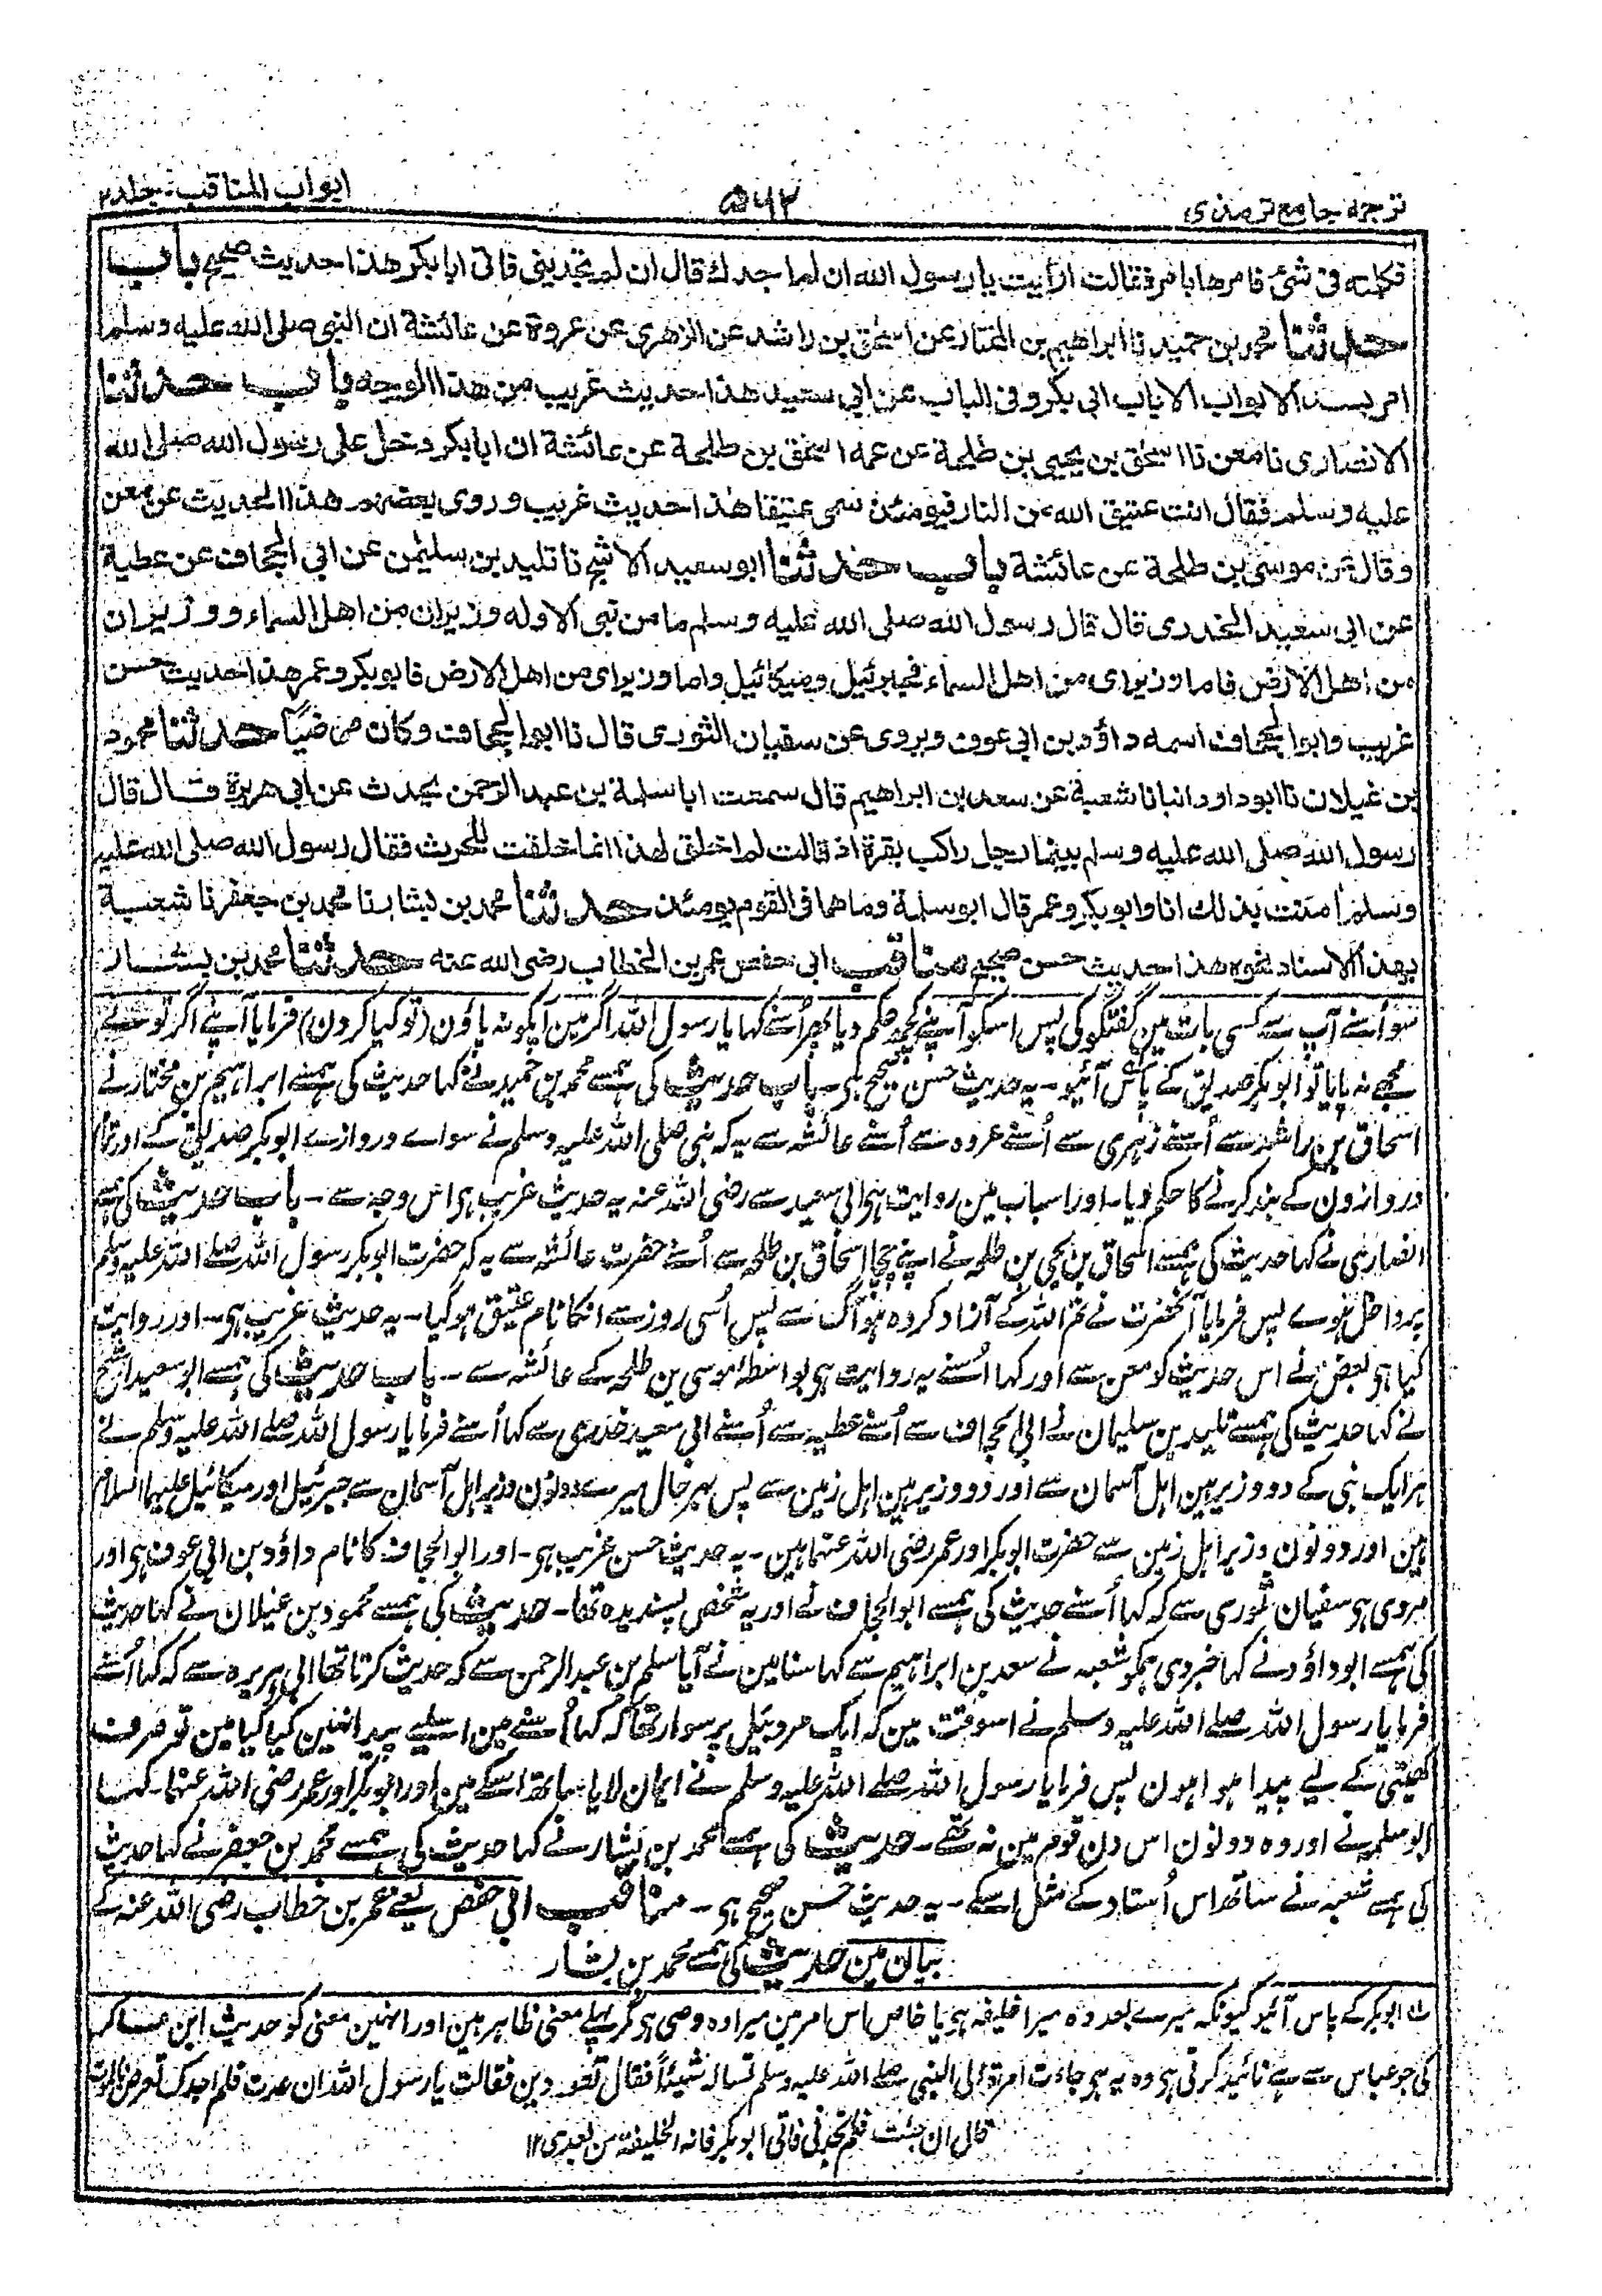 ترجمہ جامع ترمذی
۵۶۲
ابواب المناقب جلد ۲
فکلمته فی شئ فامرها بامر فقالت ارأیت یا رسول الله ان لم اجدك قال ان لم تجدینی فاتی ابا بکر هذا حدیث صحیح باب
حدثنا محمد بن حمید نا ابراهیم بن المختار عن اسحٰق بن راشد عن الزهری عن عروة عن عائشة ان النبی صلی الله علیه وسلم
امر بسد الابواب الا باب ابی بکر وفی الباب عن ابی سعید هذا حدیث غریب من هذا الوجه باب حدثنا
الانصاری نا معن نا اسحٰق بن یحیی بن طلحة عن عمه اسحٰق بن طلحة عن عائشة ان ابا بکر دخل علی رسول الله صلی الله
علیه وسلم فقال انت عتیق الله من النار فیومئذ سمی عتیقا هذا حدیث غریب وروی بعضهم هذا الحدیث عن معن
وقال عن موسی بن طلحة عن عائشة باب حدثنا ابو سعید الاشج نا تلید بن سلیمٰن عن ابی الجحاف عن عطیة
عن ابی سعید الخدری قال قال رسول الله صلی الله علیه وسلم ما من نبی الا وله وزیران من اهل السماء ووزیران
من اهل الارض فاما وزیرای من اهل السماء فجبرئیل ومیکائیل واما وزیرای من اهل الارض فابو بکر وعمر هذا حدیث حسن
غریب وابو الجحاف اسمه داؤد بن ابی عوف ویروی عن سفیان الثوری قال نا ابو الجحاف وکان مرضیًا حدثنا محمود
بن غیلان نا ابو داود انبانا شعبة عن سعد بن ابراهیم قال سمعت ابا سلمة بن عبد الرحمٰن یحدث عن ابی هریرة قال قال
رسول الله صلی الله علیه وسلم بینما رجل راکب بقرة اذ قالت لم اخلق لهذا انما خلقت للحرث فقال رسول الله صلی الله علیه
وسلم اٰمنت بذلك انا وابو بکر وعمر قال ابو سلمة وما هما فی القوم یومئذ حدثنا محمد بن بشار نا محمد بن جعفر نا شعبة
بهذا الاسناد نحوه هذا حدیث حسن صحیح مناقب ابی حفص عمر بن الخطاب رضی الله عنه حدثنا محمد بن بشار
سو اُسنے آپ سے کسی بات مین گفتگو کی پس اسکو آپنے کچھ حکم دیا پھر اُسنے کہا یا رسول اللہ اگر مین آپکو نہ پاؤن (تو کیا کرون) فرمایا آپنے اگر تو نے
مجھے نہ پایا تو ابو بکر صدیق کے پاس آئیو۔ یہ حدیث حسن صحیح ہی۔ باب حدیث کی ہمسے محمد بن حمید نے کہا حدیث کی ہمسے ابراہیم بن مختار نے
اسحاق بن راشد سے اُسنے زہری سے اُسنے عروہ سے اُسنے عائشہ سے یہ کہ نبی صلی اللہ علیہ وسلم نے سواے دروازے ابو بکر صدیق کے اور تمام
دروازون کے بند کرنے کا حکم دیا۔ اور اسباب مین روایت ہی ابی سعید سے رضی اللہ عنہ یہ حدیث غریب ہی اس وجہ سے۔ باب حدیث کی ہمسے
انصاری نے کہا حدیث کی ہمسے اسحاق بن یحیی بن طلحہ نے اپنے چچا اسحاق بن طلحہ سے اُسنے حضرت عائشہ سے یہ کہ حضرت ابو بکر رسول اللہ صلے اللہ علیہ وسلم
پر داخل ہوے پس فرمایا آنحضرت نے تم اللہ کے آزاد کردہ ہو آگ سے پس اُسی روز سے انکا نام عتیق ہو گیا۔ یہ حدیث غریب ہی۔ اور روایت
کیا ہی بعض نے اس حدیث کو معن سے اور کہا اُسنے یہ روایت ہی بواسطہ موسی بن طلحہ کے عائشہ سے۔ باب حدیث کی ہمسے ابو سعید اشج
نے کہا حدیث کی ہمسے تلید بن سلیمان نے ابی الجحاف سے اُسنے عطیہ سے اُسنے ابی سعید خدری سے کہا اُسنے فرمایا رسول اللہ صلے اللہ علیہ وسلم نے
ہر ایک نبی کے دو وزیر ہین اہل آسمان سے اور دو وزیر ہین اہل زمین سے پس بہر حال میرے دونون وزیر اہل آسمان سے جبرئیل اور میکائیل علیہما السلام
ہین اور دونون وزیر اہل زمین سے حضرت ابو بکر اور عمر رضی اللہ عنہما ہین۔ یہ حدیث حسن غریب ہی۔ اور ابو الجحاف کا نام داؤد بن ابی عوف ہی اور
مروی ہی سفیان ثوری سے کہ کہا اُسنے حدیث کی ہمسے ابو الجحاف نے اور یہ شخص پسندیدہ تھا۔ حدیث کی ہمسے محمود بن غیلان نے کہا حدیث
کی ہمسے ابو داؤد نے کہا خبر دی ہمکو شعبہ نے سعد بن ابراہیم سے کہا سنا مین نے ابا سلمہ بن عبد الرحمن سے کہ حدیث کرتا تھا ابی ہریرہ سے کہ کہا اُسنے
فرمایا رسول اللہ صلے اللہ علیہ وسلم نے اسوقت مین کہ ایک مرد بیل پر سوار تھا کہ کہا اُسنے مین اسلیے پیدا نہین کیا گیا مین تو صرف
کھیتی کے لیے پیدا ہوا ہون پس فرمایا رسول اللہ صلے اللہ علیہ وسلم نے ایمان لایا ساتھ اسکے مین اور ابو بکر اور عمر رضی اللہ عنہما۔ کہا
ابو سلمہ نے اور وہ دونون اس دن قوم مین نہ تھے۔ حدیث کی ہمسے محمد بن بشار نے کہا حدیث کی ہمسے محمد بن جعفر نے کہا حدیث
کی ہمسے شعبہ نے ساتھ اس اُستاد کے مثل اسکے۔ یہ حدیث حسن صحیح ہی۔ مناقب ابی حفص یعنے عمر بن خطاب رضی اللہ عنہ کے
بیان مین حدیث کی ہمسے محمد بن بشار
ابو بکر کے پاس آئیو کیونکہ میرے بعد وہ میرا خلیفہ ہی یا خاص اس امر مین میرا وہ وصی ہی مگر پہلے معنی ظاہر ہین اور انہین معنی کو حدیث ابن عساکر
کی جو عباس سے ہے تائید کرتی ہی وہ یہ ہی جاءت امرۃ الی النبی صلے اللہ علیہ وسلم تسالہ شیئًا فقال تعودین فقالت یا رسول اللہ ان عدت فلم اجدک تعرض بالموت
قال ان جئت فلم تجدنی فاتی ابو بکر فانہ الخلیفۃ من بعدی ۱۲